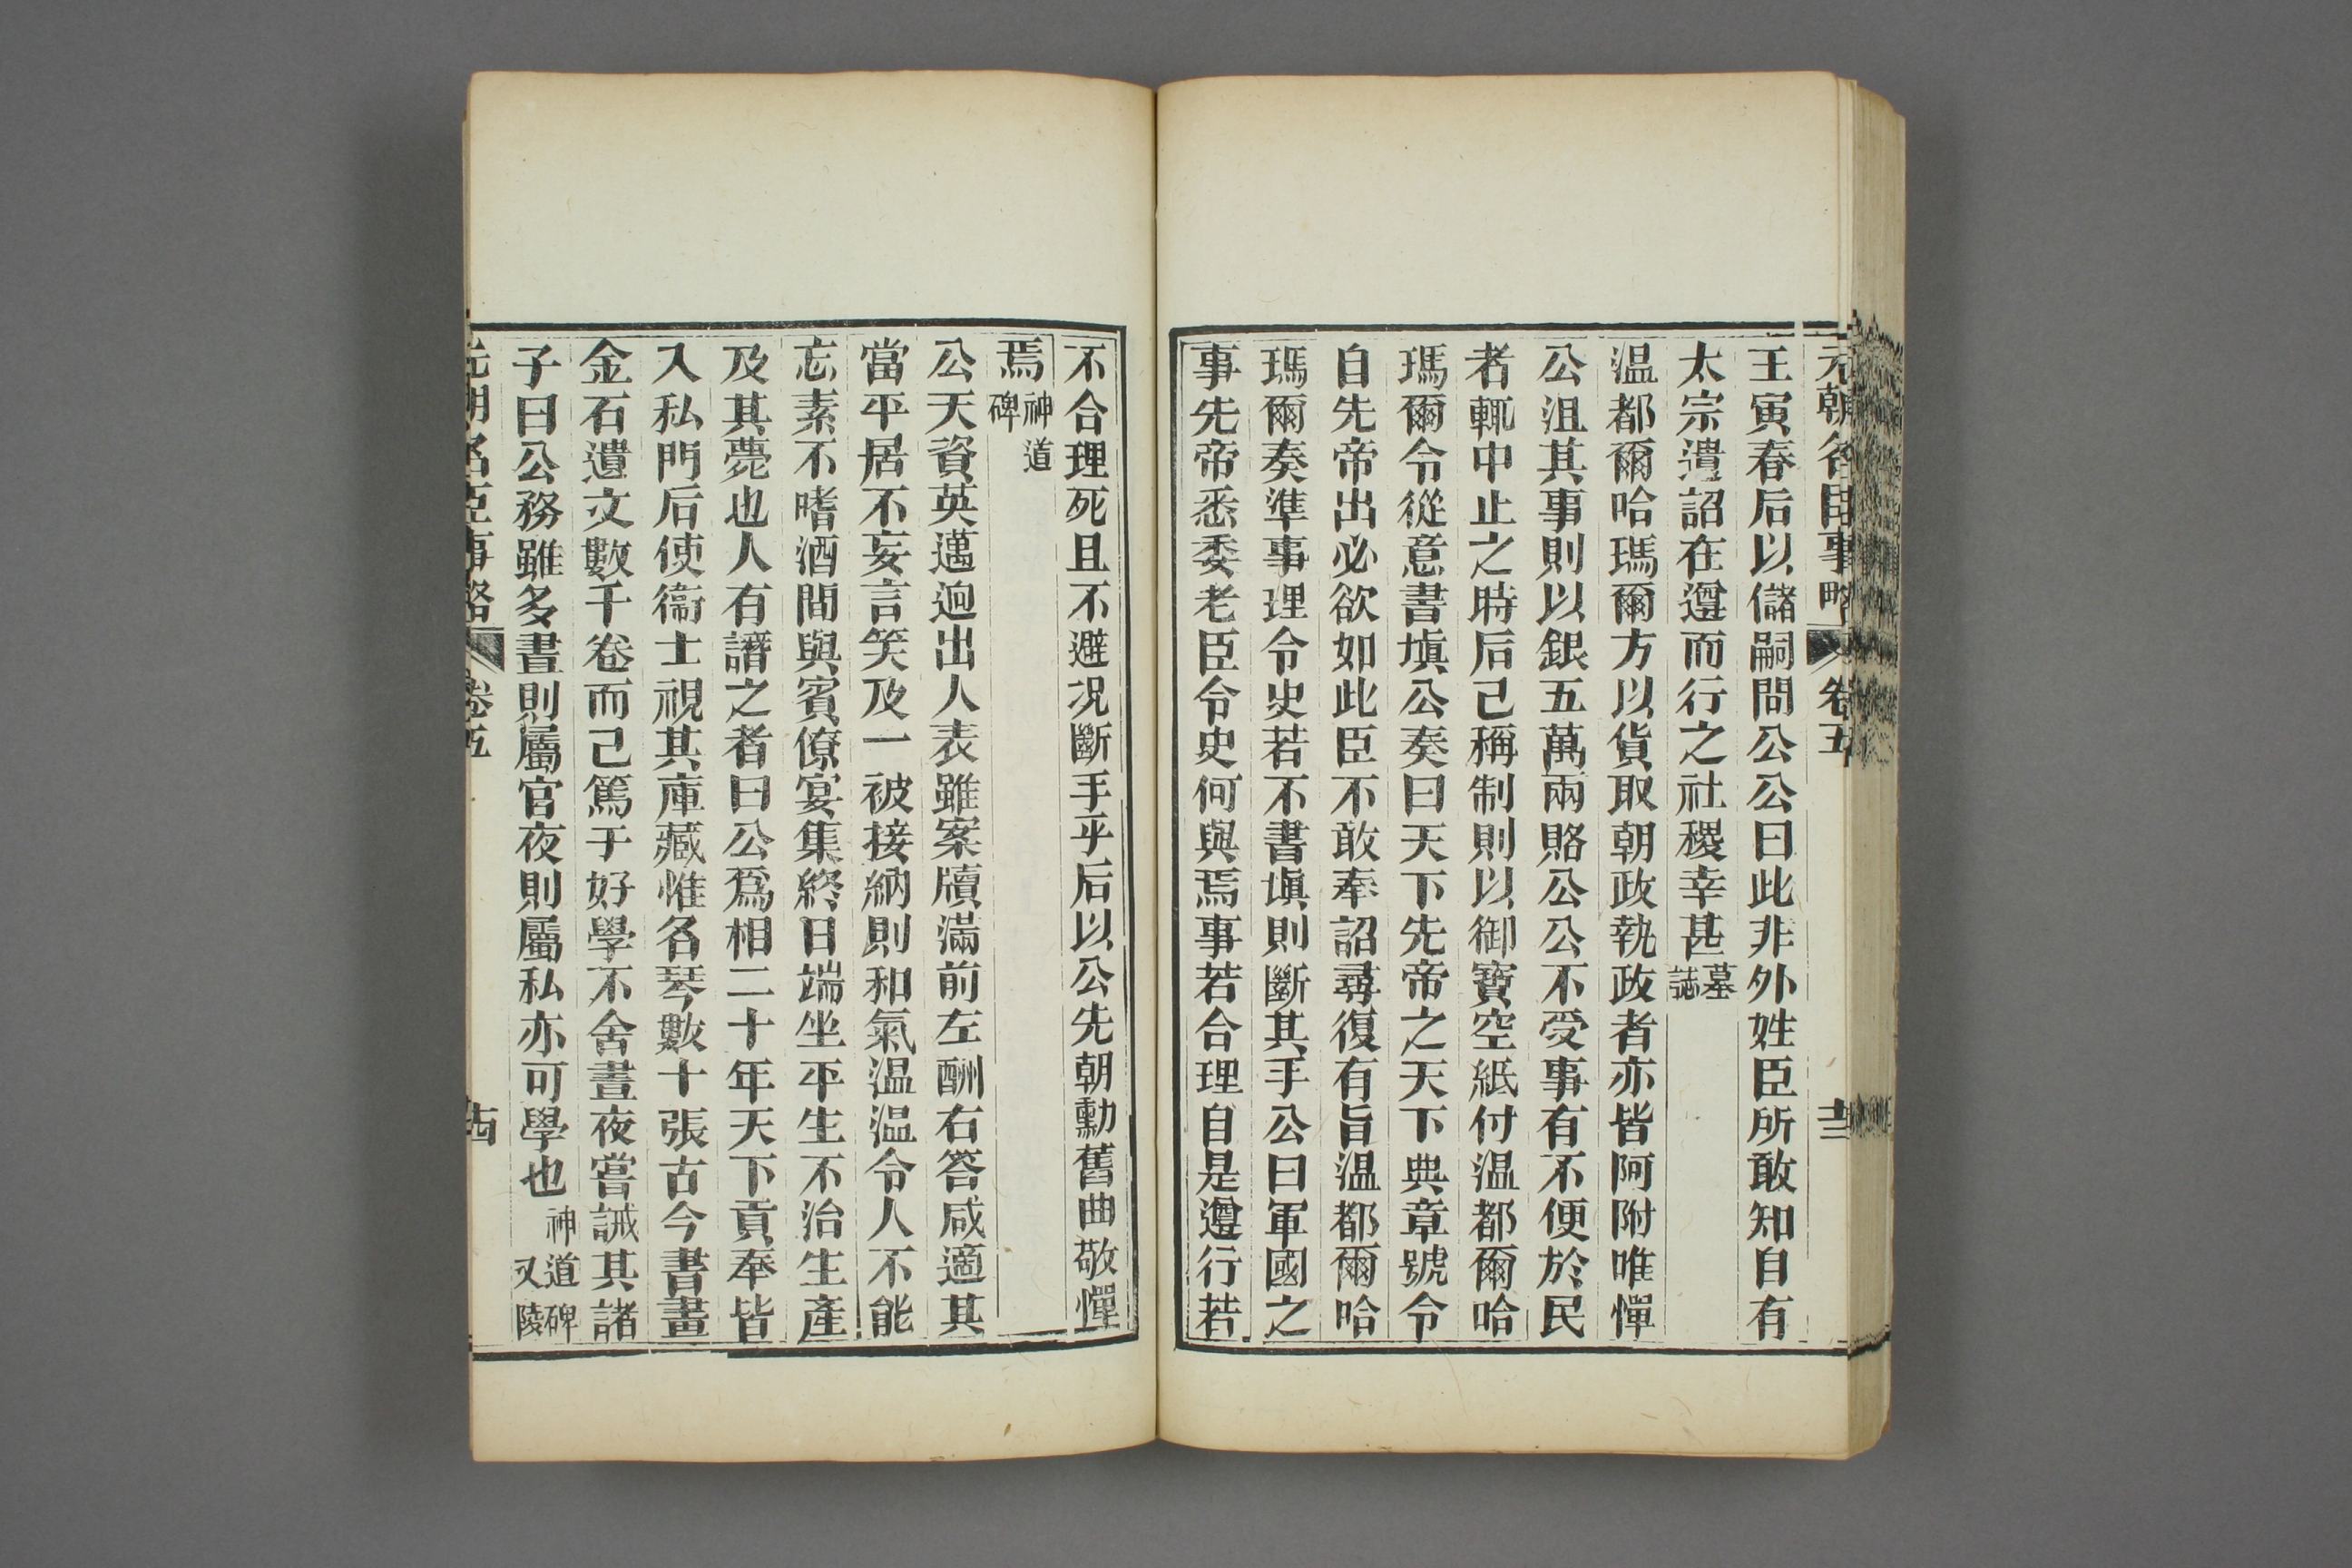 元朝名臣事略 卷五 十三
王寅春后以儲嗣問公公曰此非外姓臣所敢知自有
太宗遺詔在遵而行之社稷幸甚墓誌
温都爾哈瑪爾方以貨取朝政執政者亦皆阿附唯憚
公沮其事則以銀五萬兩賂公公不受事有不便於民
者輒中止之時后已稱制則以御寶空紙付温都爾哈
瑪爾令從意書塡公奏曰天下先帝之天下典章號令
自先帝出必欲如此臣不敢奉詔尋復有旨温都爾哈
瑪爾奏準事理令史若不書塡則斷其手公曰軍國之
事先帝悉委老臣令史何與焉事若合理自是遵行若
不合理死且不避况斷手乎后以公先朝勳舊曲敬憚
焉神道碑
公天資英邁迥出人表雖案牘滿前左酬右答咸適其
當平居不妄言笑及一被接納則和氣温温令人不能
忘素不嗜酒間與賓僚宴集終日端坐平生不治生產
及其薨也人有譖之者曰公爲相二十年天下貢奉皆
入私門后使衞士視其庫藏惟名琴數十張古今書畫
金石遺文數千卷而已篤于好學不舍晝夜嘗誡其諸
子曰公務雖多晝則屬官夜則屬私亦可學也神道碑又陵
元朝名臣事略 卷五 十四